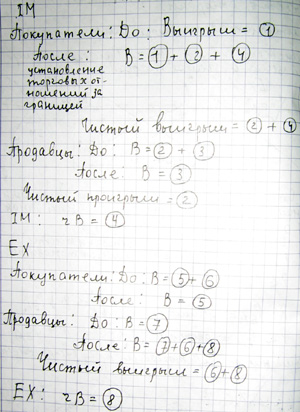 IM
Покупатели: До: Выигрыш = ①
После: В = ① + ② + ④
установление
торговых от-
ношений за
границей
Чистый выигрыш = ② + ④
Продавцы: До: В = ② + ③
После: В = ③
Чистый проигрыш = ②
IM: чВ = ④
EX
Покупатели: До: В = ⑤ + ⑥
После: В = ⑤
Продавцы: До: В = ⑦
После: В = ⑦ + ⑥ + ⑧
Чистый выигрыш = ⑥ + ⑧
EX: чВ = ⑧